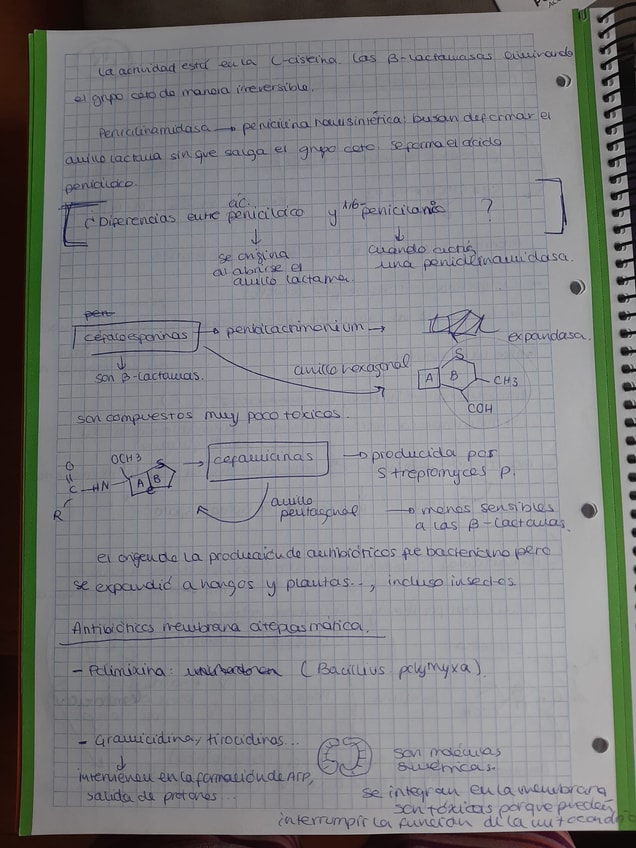 La actividad está en la L-cisteína. Las β-lactamasas eliminando
el grupo ceto de manera irreversible.
Penicilinamidasa → penicilina semisintética: buscan deformar el
anillo lactama sin que salga el grupo ceto. se forma el ácido
peniciloico.
¿Diferencias entre ác. peniciloico y penicilanico ?
↓ ↓
se origina
al abrirse el
anillo lactama.
cuando actúa
una penicilinamidasa.
pen
cefalosporinas → penta → expandasa.
↓
son β-lactamas.
anillo hexagonal
S
A B CH3
COH
son compuestos muy poco tóxicos.
O
C -HN
R
OCH3
S
A B
→ cefamicinas → producida por
Streptomyces p.
anillo
pentagonal
→ menos sensibles
a las β-lactalas
el origen de la producción de antibióticos fue bacteriano pero
se expandió a hongos y plantas..., incluso insectos
Antibióticos membrana citoplasmática.
- Polimixina: (Bacillus polymyxa).
- Gramicidina, tirocidinas...
↓
intervienen en la formación de ATP,
salida de protones...
son moléculas
simétricas.
se integran en la membrana
son tóxicas porque pueden
interrumpir la función de la mitocondria